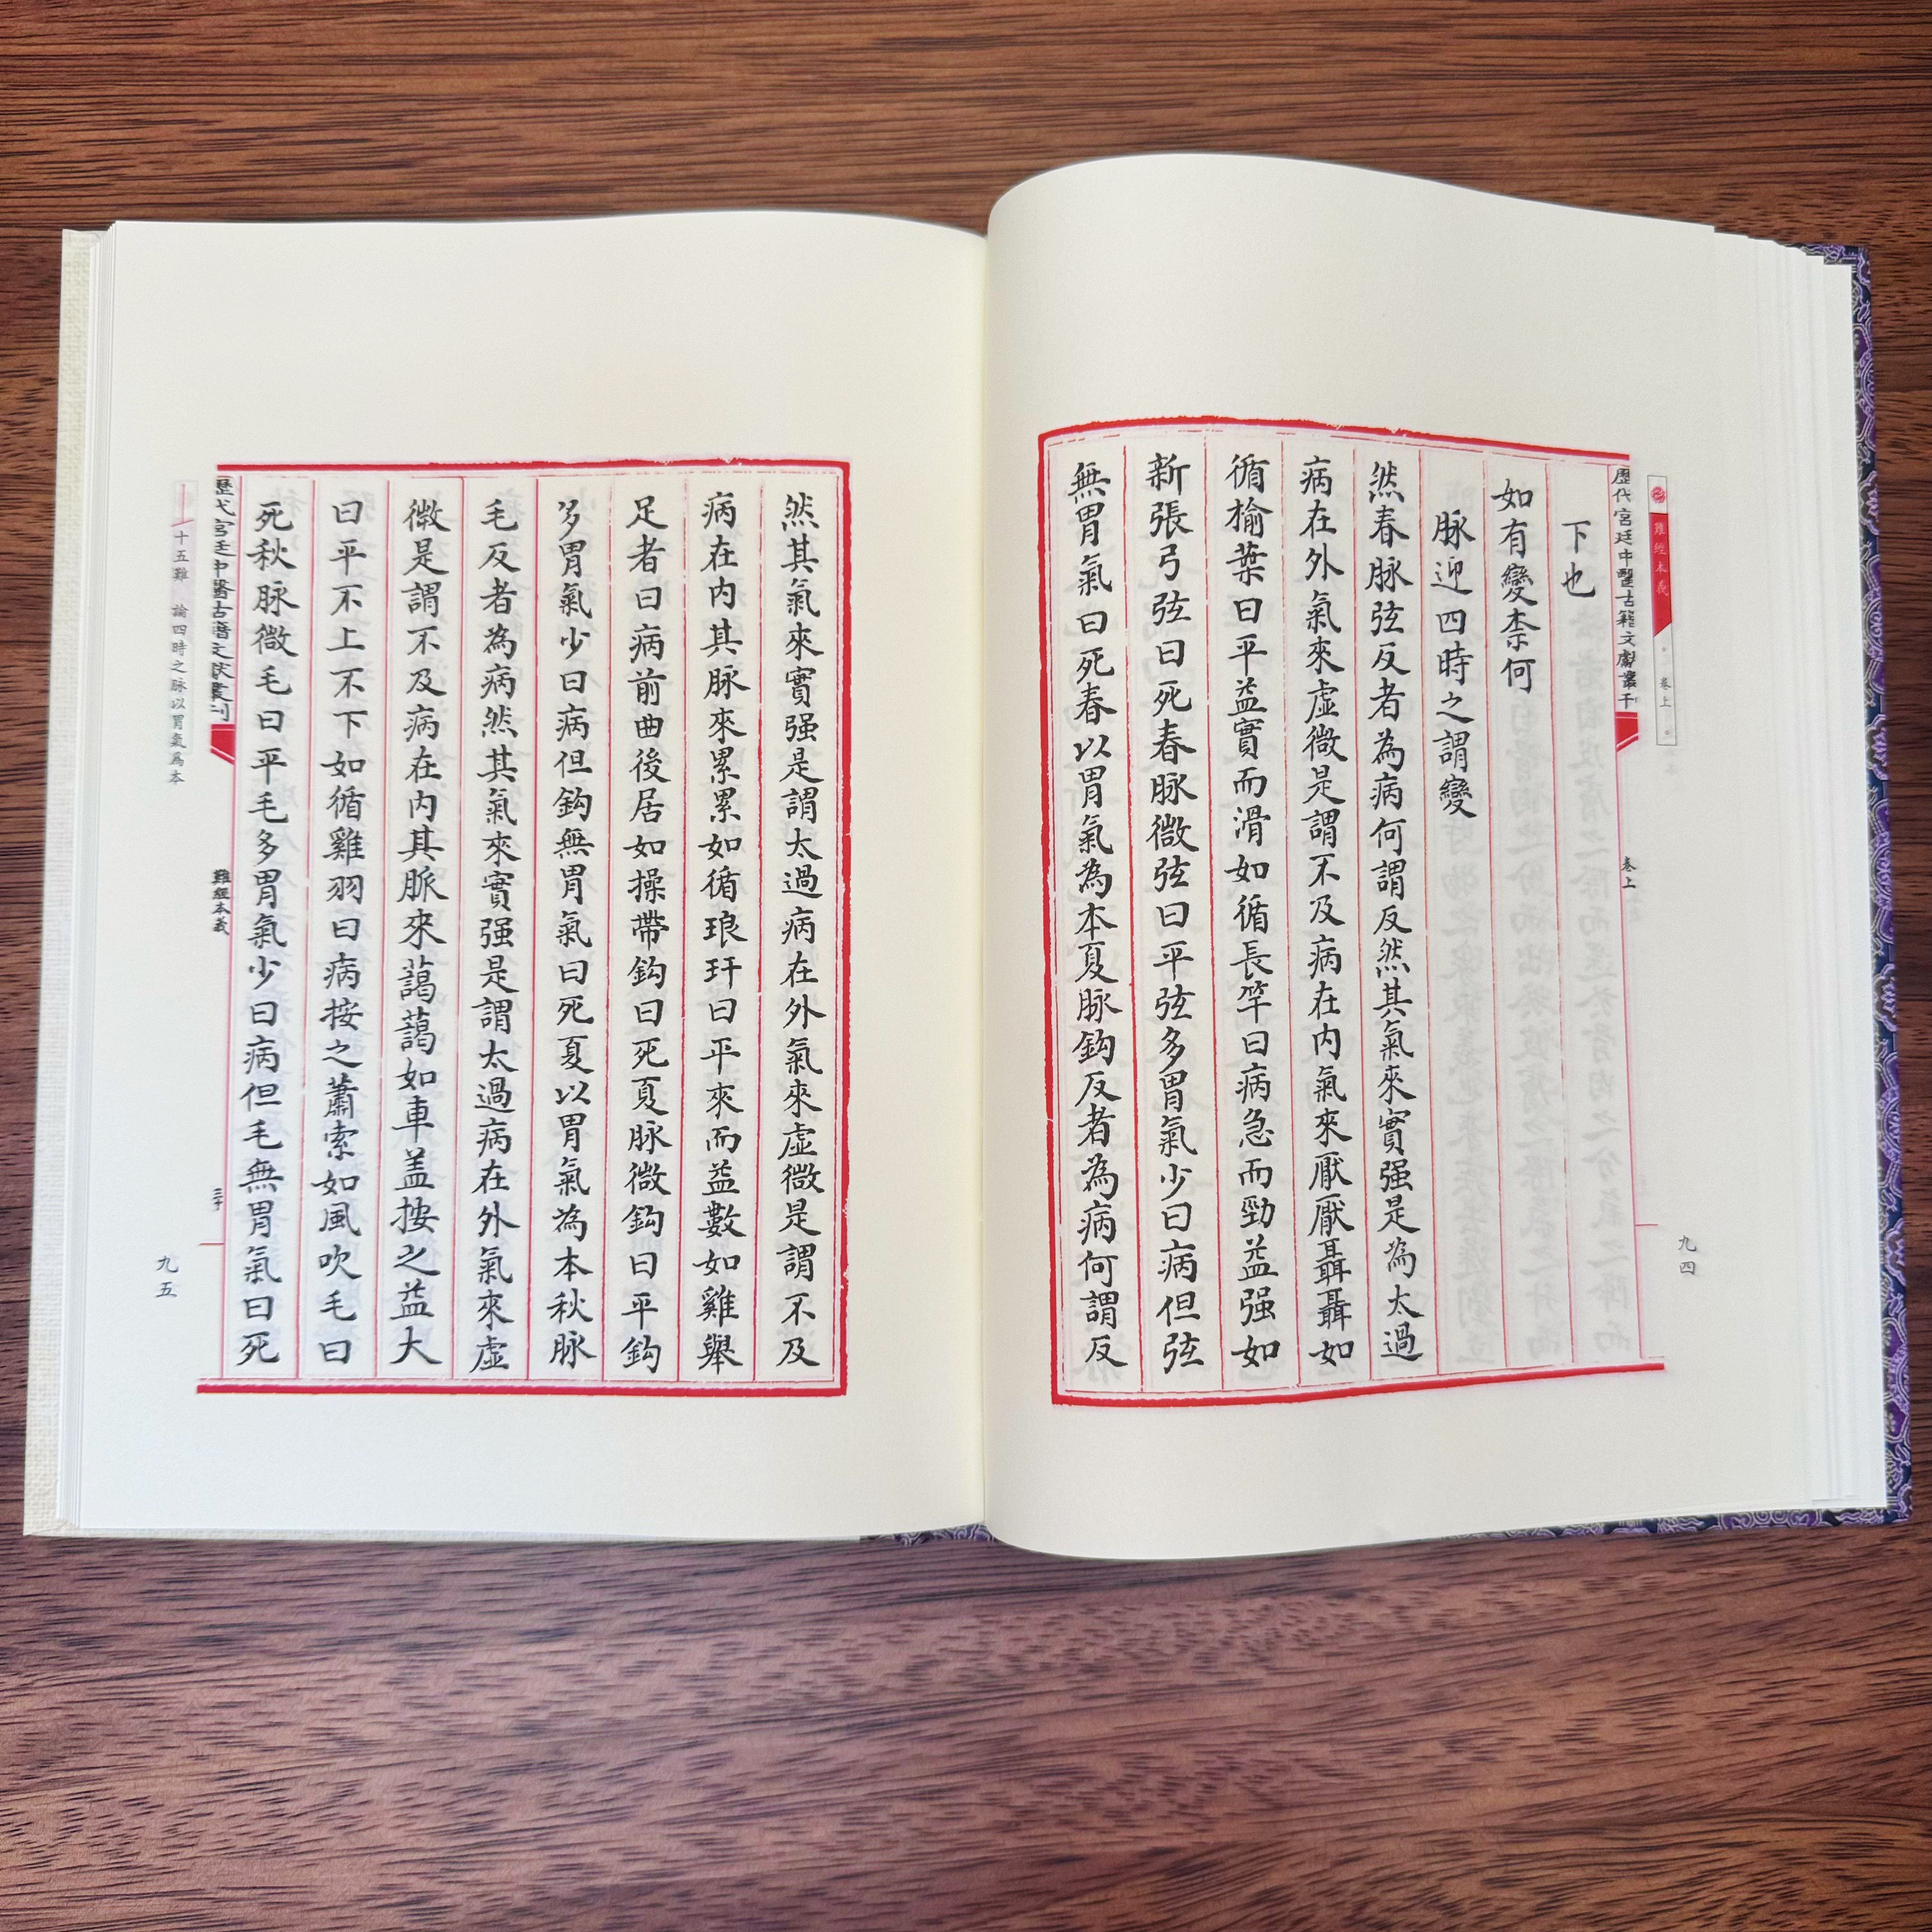 難經本義
卷上
九四
歷代宮廷中醫古籍文獻叢刊
卷上
下也
如有變柰何
脉迎四時之謂變
然春脉弦反者為病何謂反然其氣來實强是為太過
病在外氣來虛微是謂不及病在内氣來厭厭聶聶如
循榆葉曰平益實而滑如循長竿曰病急而勁益强如
新張弓弦曰死春脉微弦曰平弦多胃氣少曰病但弦
無胃氣曰死春以胃氣為本夏脉鈎反者為病何謂反
然其氣來實强是謂太過病在外氣來虛微是謂不及
病在内其脉來累累如循琅玕曰平來而益數如雞舉
足者曰病前曲後居如操帶鈎曰死夏脉微鈎曰平鈎
多胃氣少曰病但鈎無胃氣曰死夏以胃氣為本秋脉
毛反者為病然其氣來實强是謂太過病在外氣來虛
微是謂不及病在内其脈來藹藹如車盖按之益大
曰平不上不下如循雞羽曰病按之蕭索如風吹毛曰
死秋脉微毛曰平毛多胃氣少曰病但毛無胃氣曰死
歷代宮廷中醫古籍文獻叢刊
難經本義
三十
十五難 論四時之脉以胃氣爲本
九五